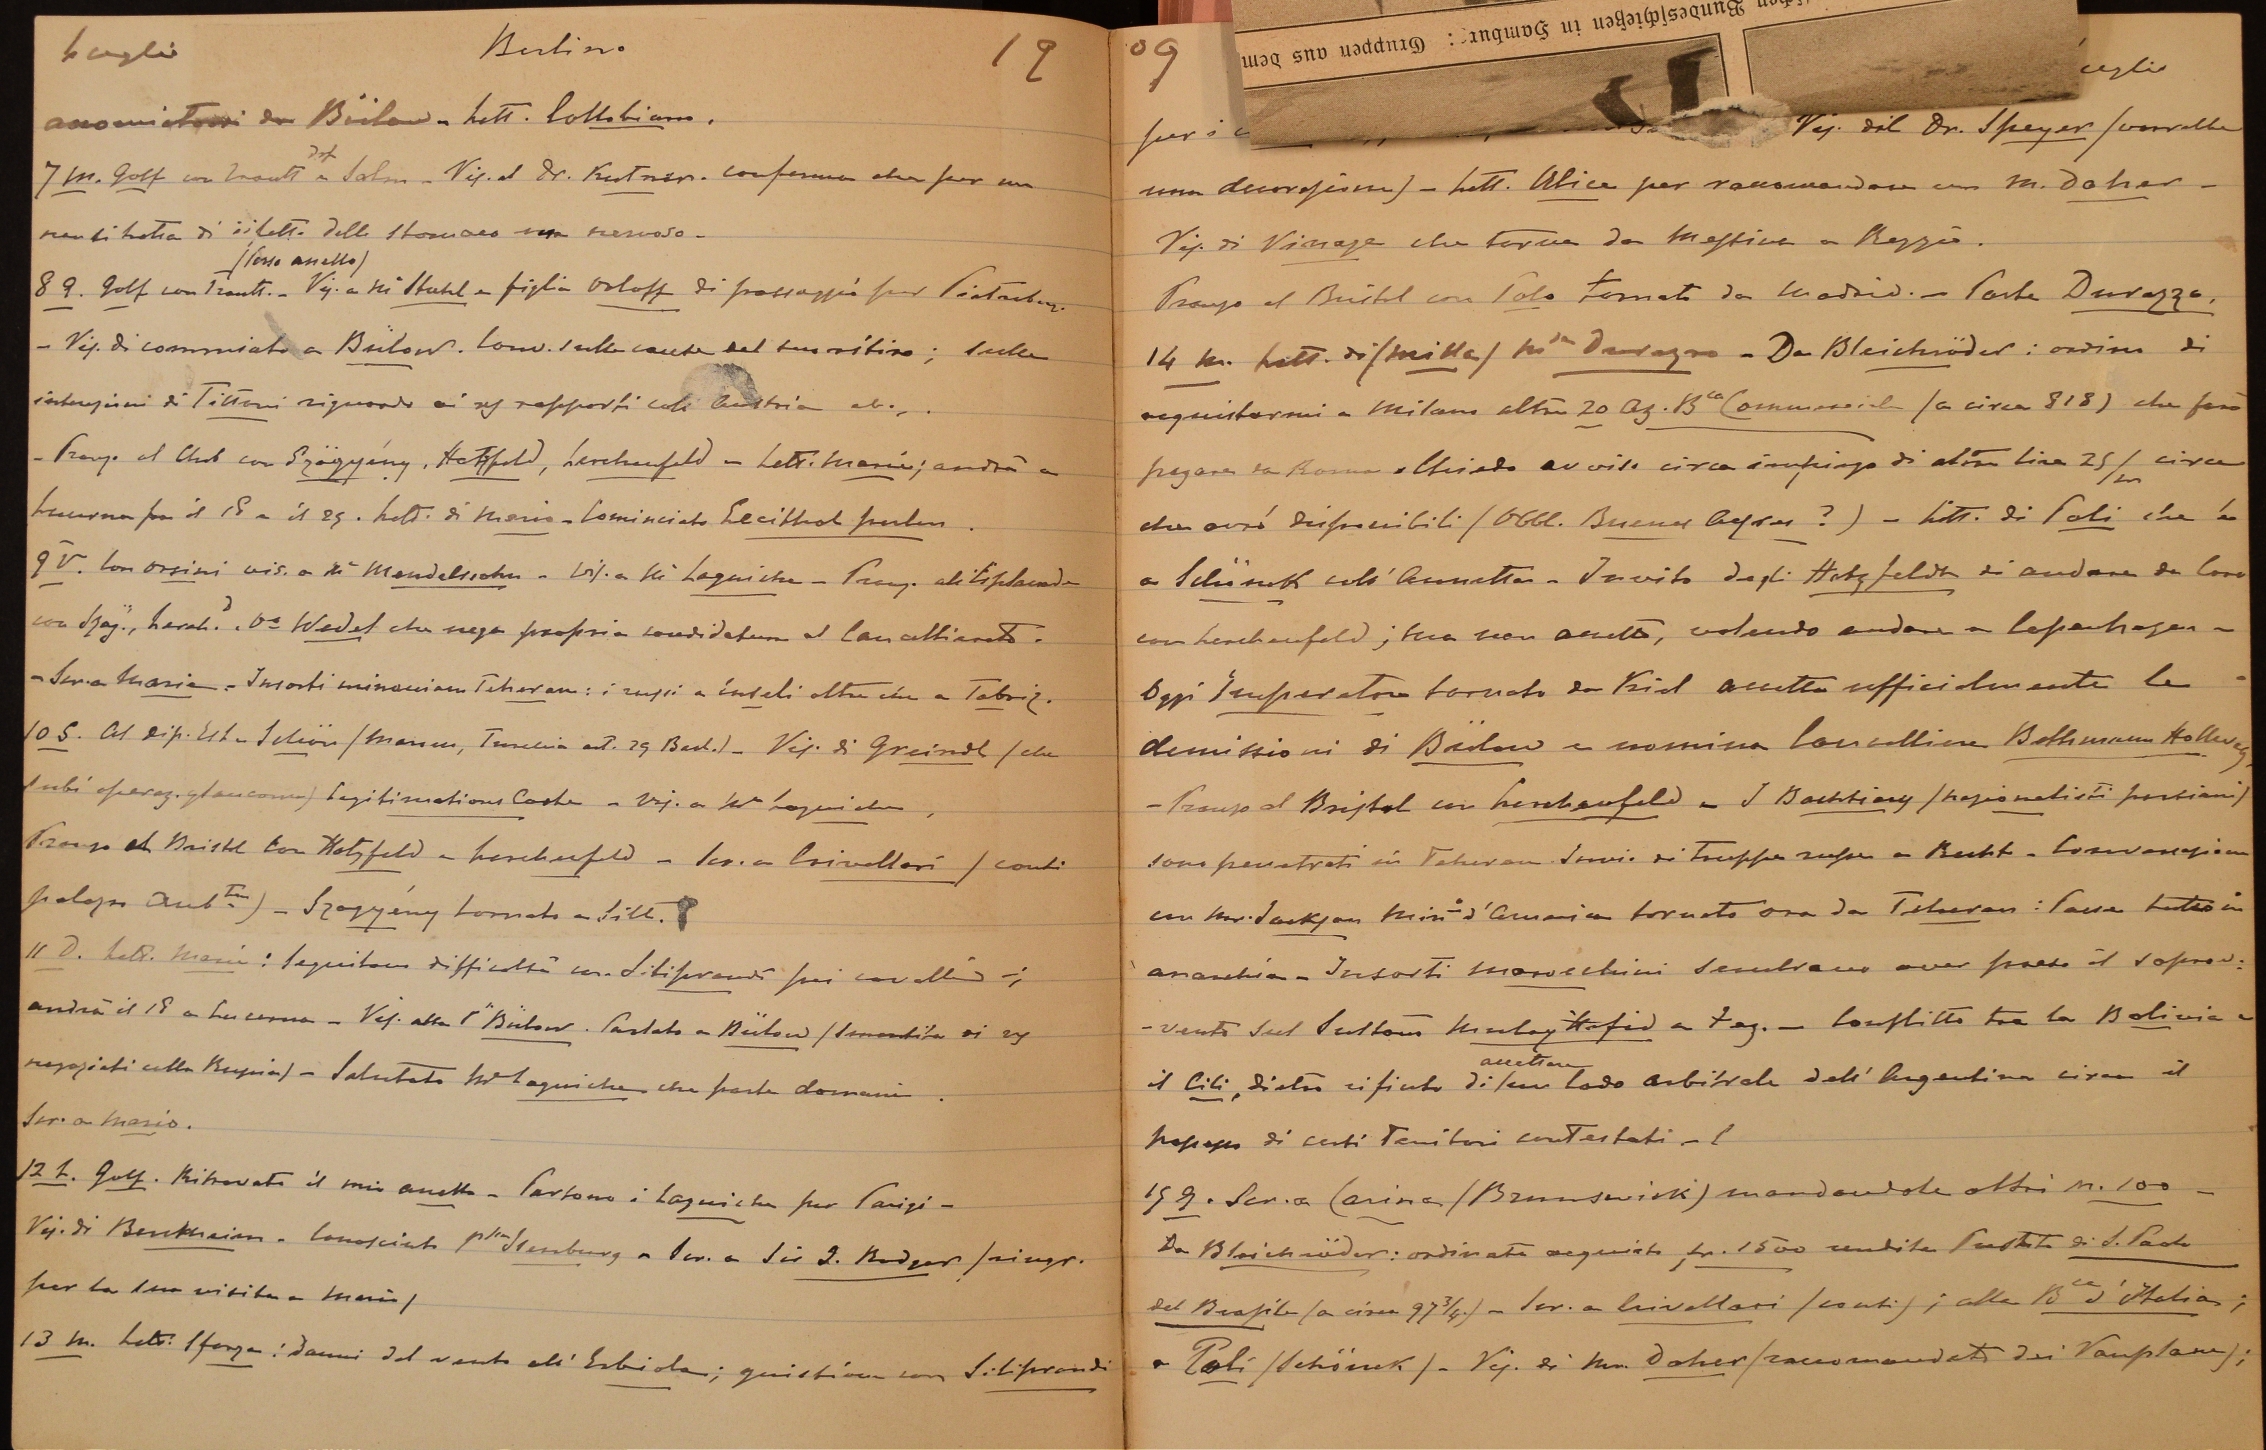 Luglio Berlino 19
accomiatarsi da Bülow - Lett. Collobiano.
7 M. Golf con Trautt e Salm - Vis. al Dr. Kutner. conferma che per una
di dello stomaco nervoso -
(Perso anello)
8 G. Golf con Trautt. - Vis. a Mᵉ Stuhl e figlia Orloff di passaggio per Pietrobur.
- Vis. di commiato a Bülow. Conv. sulle cause del suo ritiro; sulle
intenzioni di Tittoni riguardo ai rapporti coll' Austria
- Pranzo al Club con Szögyény, Hatzfeld, Lerchenfeld - Lett. Marie; andrà a
Lucerna fra il 18 e il 25. Lett. di Mario - Cominciato Lecithol
9 V. Con Orsini vis. a Mᵉ Mendelssohn - vis. a Mᵉ Laguiche - Pranzo all'Esplanade
con Szög., Lerch.ᵈ, Wedel che nega propria candidatura al Cancellierato.
- Scr. a Maria - Insorti minacciano Teheran: i russi e inglesi oltre che a Tabriz.
10 S. Al dip. Est. Schön (Marocco, - Vis. di Greindl (che
subì operaz. glaucoma) Legitimations Carte - vis. a Mᵉ Laguiche,
Pranzo al Bristol con Hatzfeld e Lerchenfeld - Scr. a Crivellari (conti
palazzo Amb.ᵗᵃ) - Szögyény tornato a
11 D. Lett. Marie: Seguitano difficoltà con Siliprandi pei cavalli - ;
andrà il 18 a Lucerna - Vis. alla Pˢˢᵃ Bülow. Parlato a Bülow (smentita di
negoziati colla Russia) - Salutato Mᵉ Laguiche che parte domani.
Scr. a Mario.
12 L. Golf. Ritrovato il mio anello - Partono i Laguiche per Parigi -
Vis. di Berckheim - Conosciuto Isenburg - Scr. a Sir J. Rodger (ringr.
per la sua visita a Marie)
13 M. Lett. Sforza: danni del vento all' Erbiola; quistione con Siliprandi
09 Luglio
Gruppen aus dem Bundesschießen in Hamburg:
per i Vis. del Dr. Speyer (vorrebbe
una decorazione) - Lett. Alice per raccomandare un M. Daher -
Vis. di Vinage che torna da Messina e Reggio.
Pranzo al Bristol con Polo tornato da Madrid. - Parte Durazzo.
14 M. Lett. di (Mitta) Mˢᵃ Durazzo - Da Bleichröder: ordino di
acquistarmi a Milano altre 20 Az. Bᶜᵃ Commerciale (a circa 818) che farò
pagare da Roma e chiedo avviso circa impiego di altre lire 25/m circa
che avrò disponibili (Obbl. Buenos Ayres?) - Lett. di Poli che è
a Schöneck coll' Annetta - Invito degli Hatzfeldt di andare da loro
con Lerchenfeld; ma non accetto, volendo andare a Copenhagen -
Oggi Imperatore tornato da Kiel accetta ufficialmente le
demissioni di Bülow e nomina Cancelliere Bethmann Hollweg.
- Pranzo al Bristol con Lerchenfeld - I Bachtiary (nazionalisti persiani)
sono penetrati in Teheran. Invio di truppe russe a Recht - Conversazione
con Mr. Jackson Minᵒ d'America tornato ora da Teheran: Paese tutto in
anarchia - Insorti marocchini sembrano aver preso il soprav=
-vento sul Sultano Mulay Hafid a Fez. - Conflitto tra la Bolivia e
il Cili, dietro rifiuto di accettare un lodo arbitrale dell' Argentina circa il
possesso di certi territori contestati -
15 G. Scr. a Carina (Brunswick) mandandole altri m. 100 -
Da Bleichröder: ordinato acquisto fr. 1500 rendita Prestito di S. Paolo
del Brasile (a circa 97 3/4) - Scr. a Crivellari (conti); alla Bᶜᵃ d'Italia;
a Poli (Schöneck) - Vis. di Mr. Daher (raccomandato dei Vauplane);